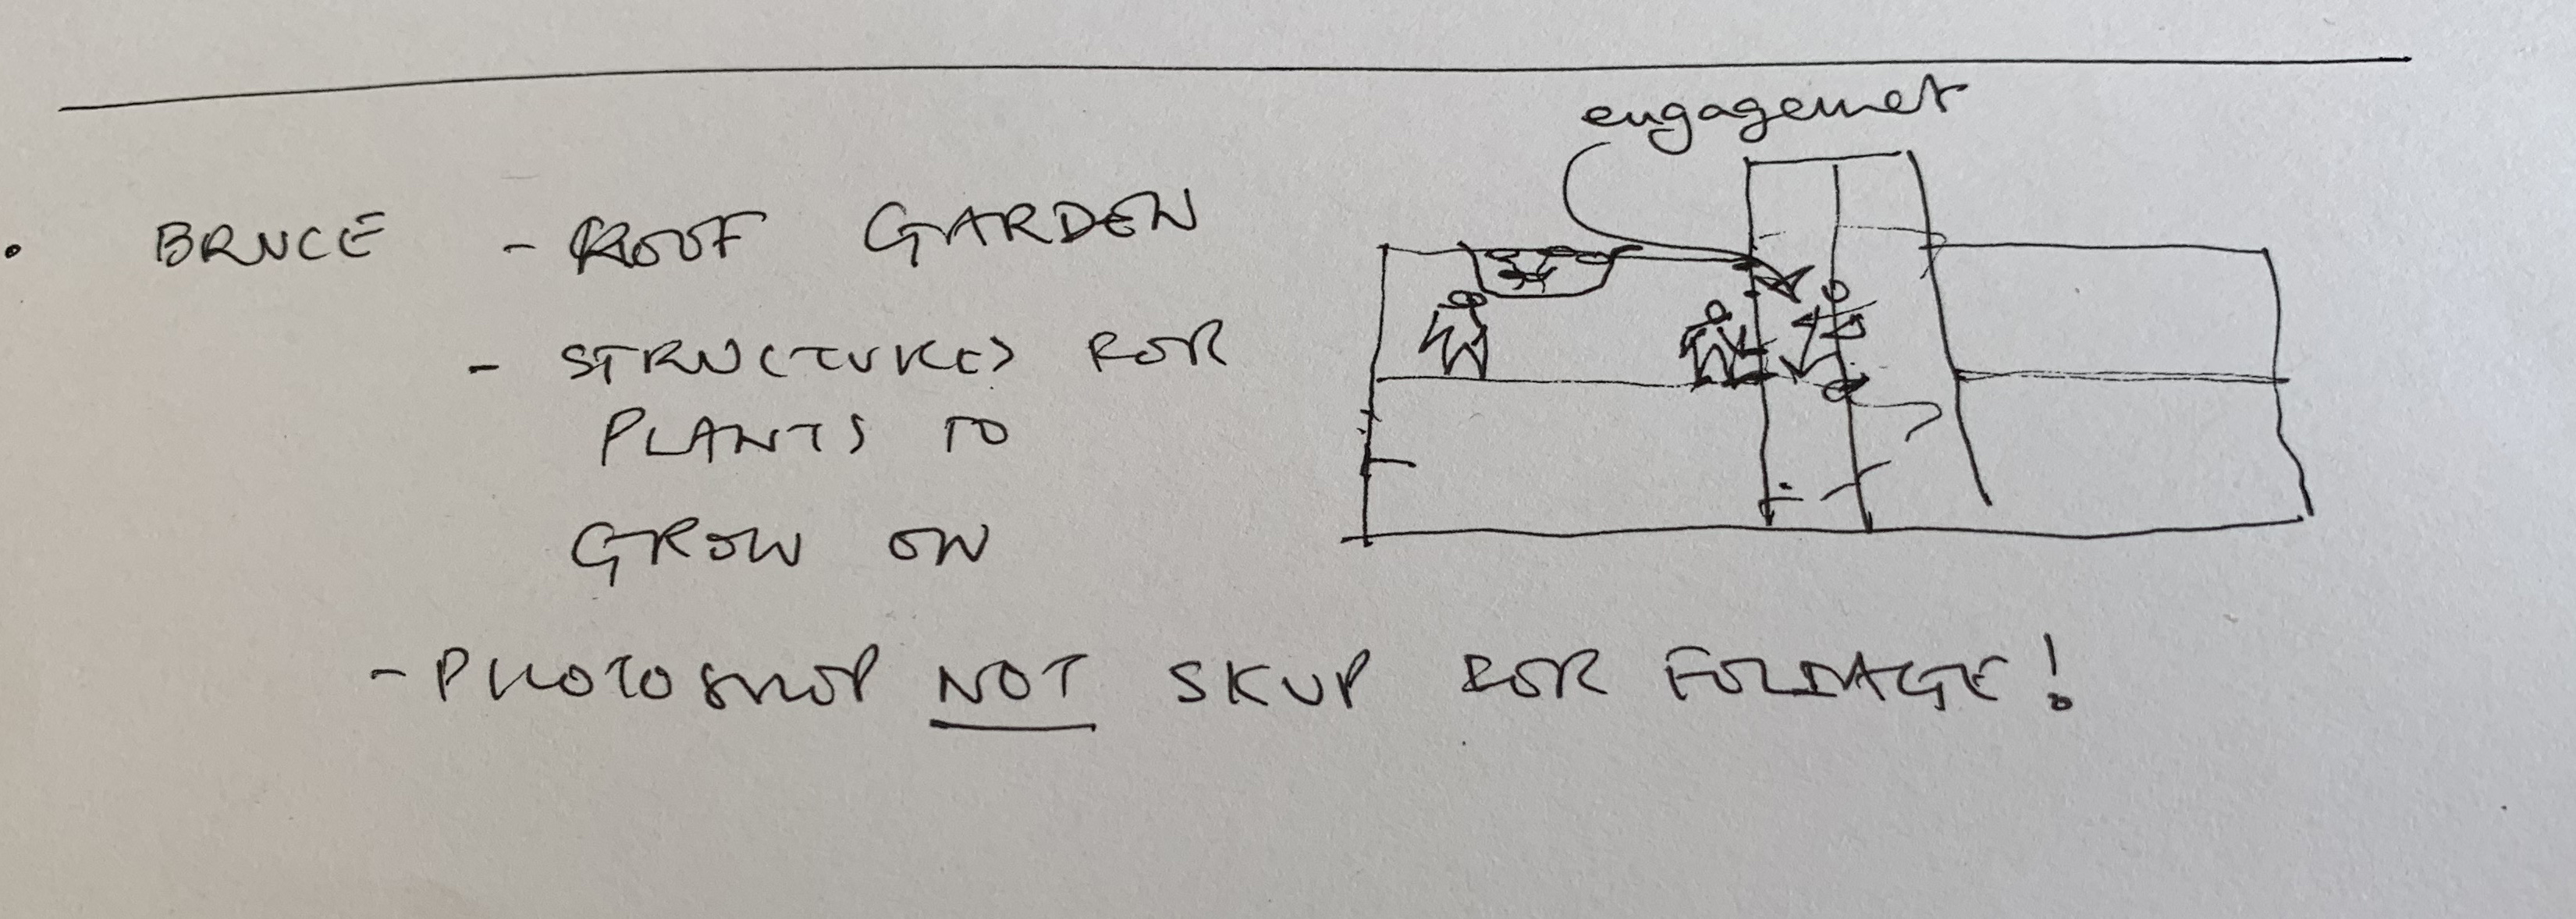 engagemet
• BRUCE - ROOF GARDEN
- STRUCTURES FOR
PLANTS TO
GROW ON
- PHOTOSHOP NOT SKUP FOR FOLIAGE!